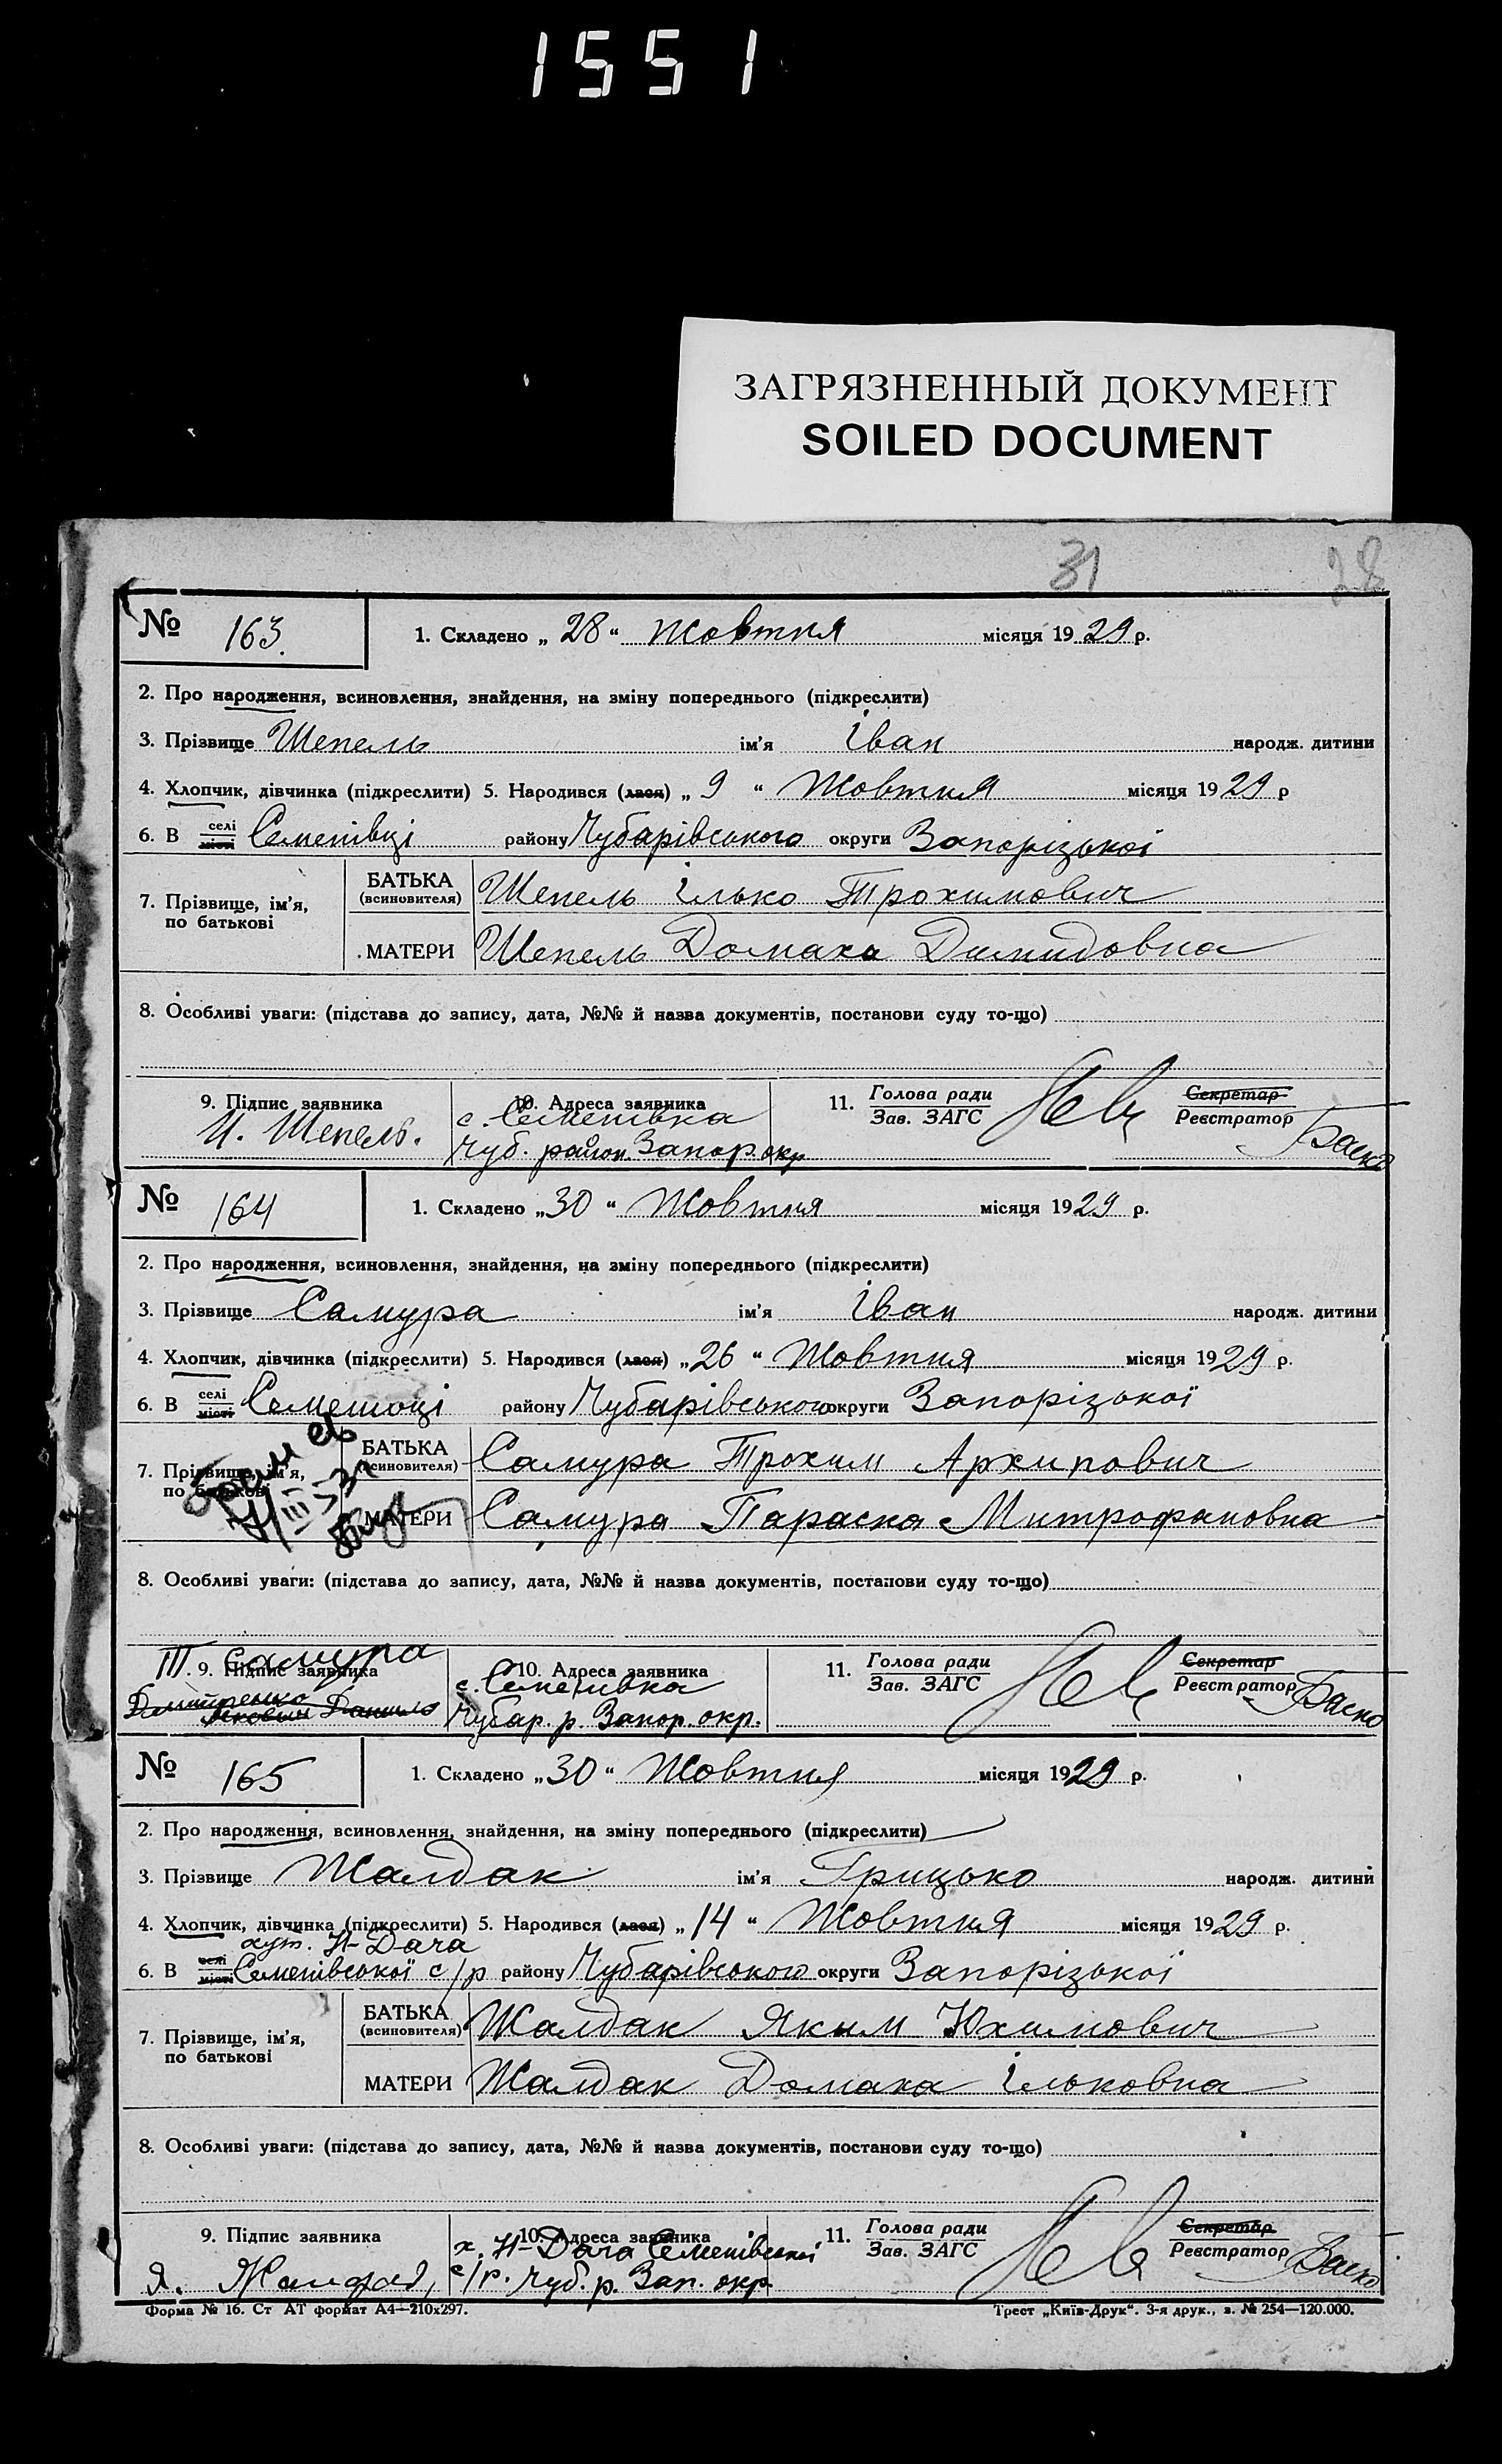 1551
ЗАГРЯЗНЕННЫЙ ДОКУМЕНТ
SOILED DOCUMENT
31 28
№ 163. 1. Складено „ 28 “ Жовтня місяця 1929 р.
2. Про народження, всиновлення, знайдення, на зміну попереднього (підкреслити)
3. Прізвище Шепель ім’я Іван народж. дитини
4. Хлопчик, дівчинка (підкреслити) 5. Народився (лася) „ 9 “ Жовтня місяця 1929 р
6. В селі місті Семенівці району Чубарівського округи Запорізької
7. Прізвище, ім’я, по батькові БАТЬКА (всиновителя) Шепель Ілько Трохимович
МАТЕРИ Шепель Домаха Демидовна
8. Особливі уваги: (підстава до запису, дата, №№ й назва документів, постанови суду то-що)
9. Підпис заявника 10. Адреса заявника 11. Голова ради Зав. ЗАГС Секретар Реєстратор
И. Шепель. с. Семенівка Баско
Чуб. район. Запор. окр
№ 164 1. Складено „30“ Жовтня місяця 1929 р.
2. Про народження, всиновлення, знайдення, на зміну попереднього (підкреслити)
3. Прізвище Самура ім’я Іван народж. дитини
4. Хлопчик, дівчинка (підкреслити) 5. Народився (лася) „26“ Жовтня місяця 1929 р.
6. В селі місті Семеновці району Чубарівського округи Запорізької
7. Прізвище, ім’я, по батькові БАТЬКА (всиновителя) Самура Трохим Архипович
МАТЕРИ Самура Параска Митрофановна
8. Особливі уваги: (підстава до запису, дата, №№ й назва документів, постанови суду то-що)
Т. Самура
9. Підпис заявника 10. Адреса заявника 11. Голова ради Зав. ЗАГС Секретар Реєстратор
Дмитренко Данило с. Семенівка Баско
Чубар. р. Запор. окр.
№ 165 1. Складено „30“ Жовтня місяця 1929 р.
2. Про народження, всиновлення, знайдення, на зміну попереднього (підкреслити)
3. Прізвище Жалдак ім’я Грицько народж. дитини
4. Хлопчик, дівчинка (підкреслити) 5. Народився (лася) „14“ Жовтня місяця 1929 р.
хут. Н-Дача
6. В селі місті Семенівської с/р району Чубарівського округи Запорізької
7. Прізвище, ім’я, по батькові БАТЬКА (всиновителя) Жалдак Яким Юхимович
МАТЕРИ Жалдак Домаха Ільковна
8. Особливі уваги: (підстава до запису, дата, №№ й назва документів, постанови суду то-що)
9. Підпис заявника 10. Адреса заявника 11. Голова ради Зав. ЗАГС Секретар Реєстратор
х. Н-Дача Семенівської
Я. с/р. Чуб. р. Зап. окр. Баско
Форма № 16. Ст АТ формат А4—210х297. Трест „Київ-Друк“. 3-я друк., з. № 254—120.000.